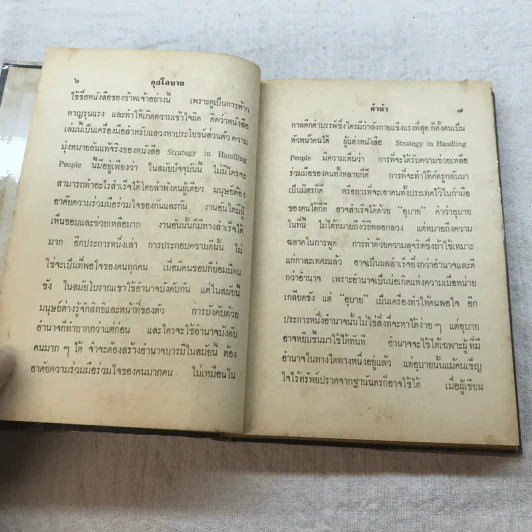 ๖
กุศโลบาย
ใช้ชื่อหนังสือของข้าพเจ้าอย่างนี้ เพราะดูเป็นการห้าว
หาญรุนแรง และทำให้เกิดความเข้าใจผิด คิดว่าหนังสือ
เล่มนี้เป็นเครื่องมือสำหรับแสวงหาประโยชน์ส่วนตัว ความ
มุ่งหมายอันแท้จริงของหนังสือ Strategy in Handling
People นี้มีอยู่เพียงว่า ในสมัยปัจจุบันนี้ ไม่มีใครจะ
สามารถทำอะไรสำเร็จได้โดยลำพังตนผู้เดียว มนุษย์ต้อง
อาศัยความร่วมมือร่วมใจของกันและกัน งานอันใดมีผู้
เห็นชอบและช่วยเหลือมาก งานอันนั้นก็มีทางสำเร็จได้
มาก อีกประการหนึ่งเล่า การประกอบความดีนั้น ไม่
ใช่จะเป็นที่พอใจของคนทุกคน เมื่อมีคนชอบก็ย่อมมีคน
ชัง ในสมัยโบราณเขาใช้อำนาจบังคับกัน แต่ในสมัยนี้
มนุษย์ต่างรู้จักสิทธิและหน้าที่ของตัว การบังคับด้วย
อำนาจก็ทำยากกว่าแต่ก่อน และใครจะใช้อำนาจบังคับ
คนมาก ๆ ได้ จำจะต้องสร้างอำนาจบารมีในสมัยนี้ ต้อง
อาศัยความร่วมมือร่วมใจของคนมากคน ไม่เหมือนใน
คำนำ
๗
กาลดึกดำบรรพ์ซึ่งใครมีกำลังกายแข็งแรงที่สุด ก็ตั้งตนเป็น
หัวหน้าคนได้ ผู้แต่งหนังสือ Strategy in Handling
People มีความเห็นว่า การที่จะได้รับความช่วยเหลือ
ร่วมมือของคนทั้งหลายก็ดี การที่จะทำให้ศัตรูกลับมา
เป็นมิตรก็ดี หรือการที่จะเอาคนทั้งประเทศไว้ในกำมือ
ของเราได้ก็ดี อาจสำเร็จได้ด้วย “อุบาย” คำว่าอุบาย
ในที่นี้ ไม่ได้หมายถึงวิธีหลอกลวง แต่หมายถึงความ
ฉลาดในการพูด การทำด้วยความสุจริตซึ่งถ้าใช้เหมาะ
แก่กาละเทศะแล้ว อาจเป็นผลสำเร็จยิ่งกว่าอำนาจและดี
กว่าอำนาจ เพราะอำนาจเป็นบ่อเกิดแห่งความเบื่อหน่าย
เกลียดชัง แต่ “อุบาย” เป็นเครื่องทำให้คนพอใจ อีก
ประการหนึ่งอำนาจนั้นไม่ใช่สิ่งที่จะหาได้ง่าย ๆ แต่อุบาย
อาจหยิบขึ้นมาใช้ได้ทันที อำนาจจะใช้ได้เฉพาะผู้ที่มี
อำนาจในทางใดทางหนึ่งอยู่แล้ว แต่อุบายนั้นแม้คนเข็ญ
ใจไร้ทรัพย์ปราศจากฐานันดรก็อาจใช้ได้ เมื่อผู้เขียน